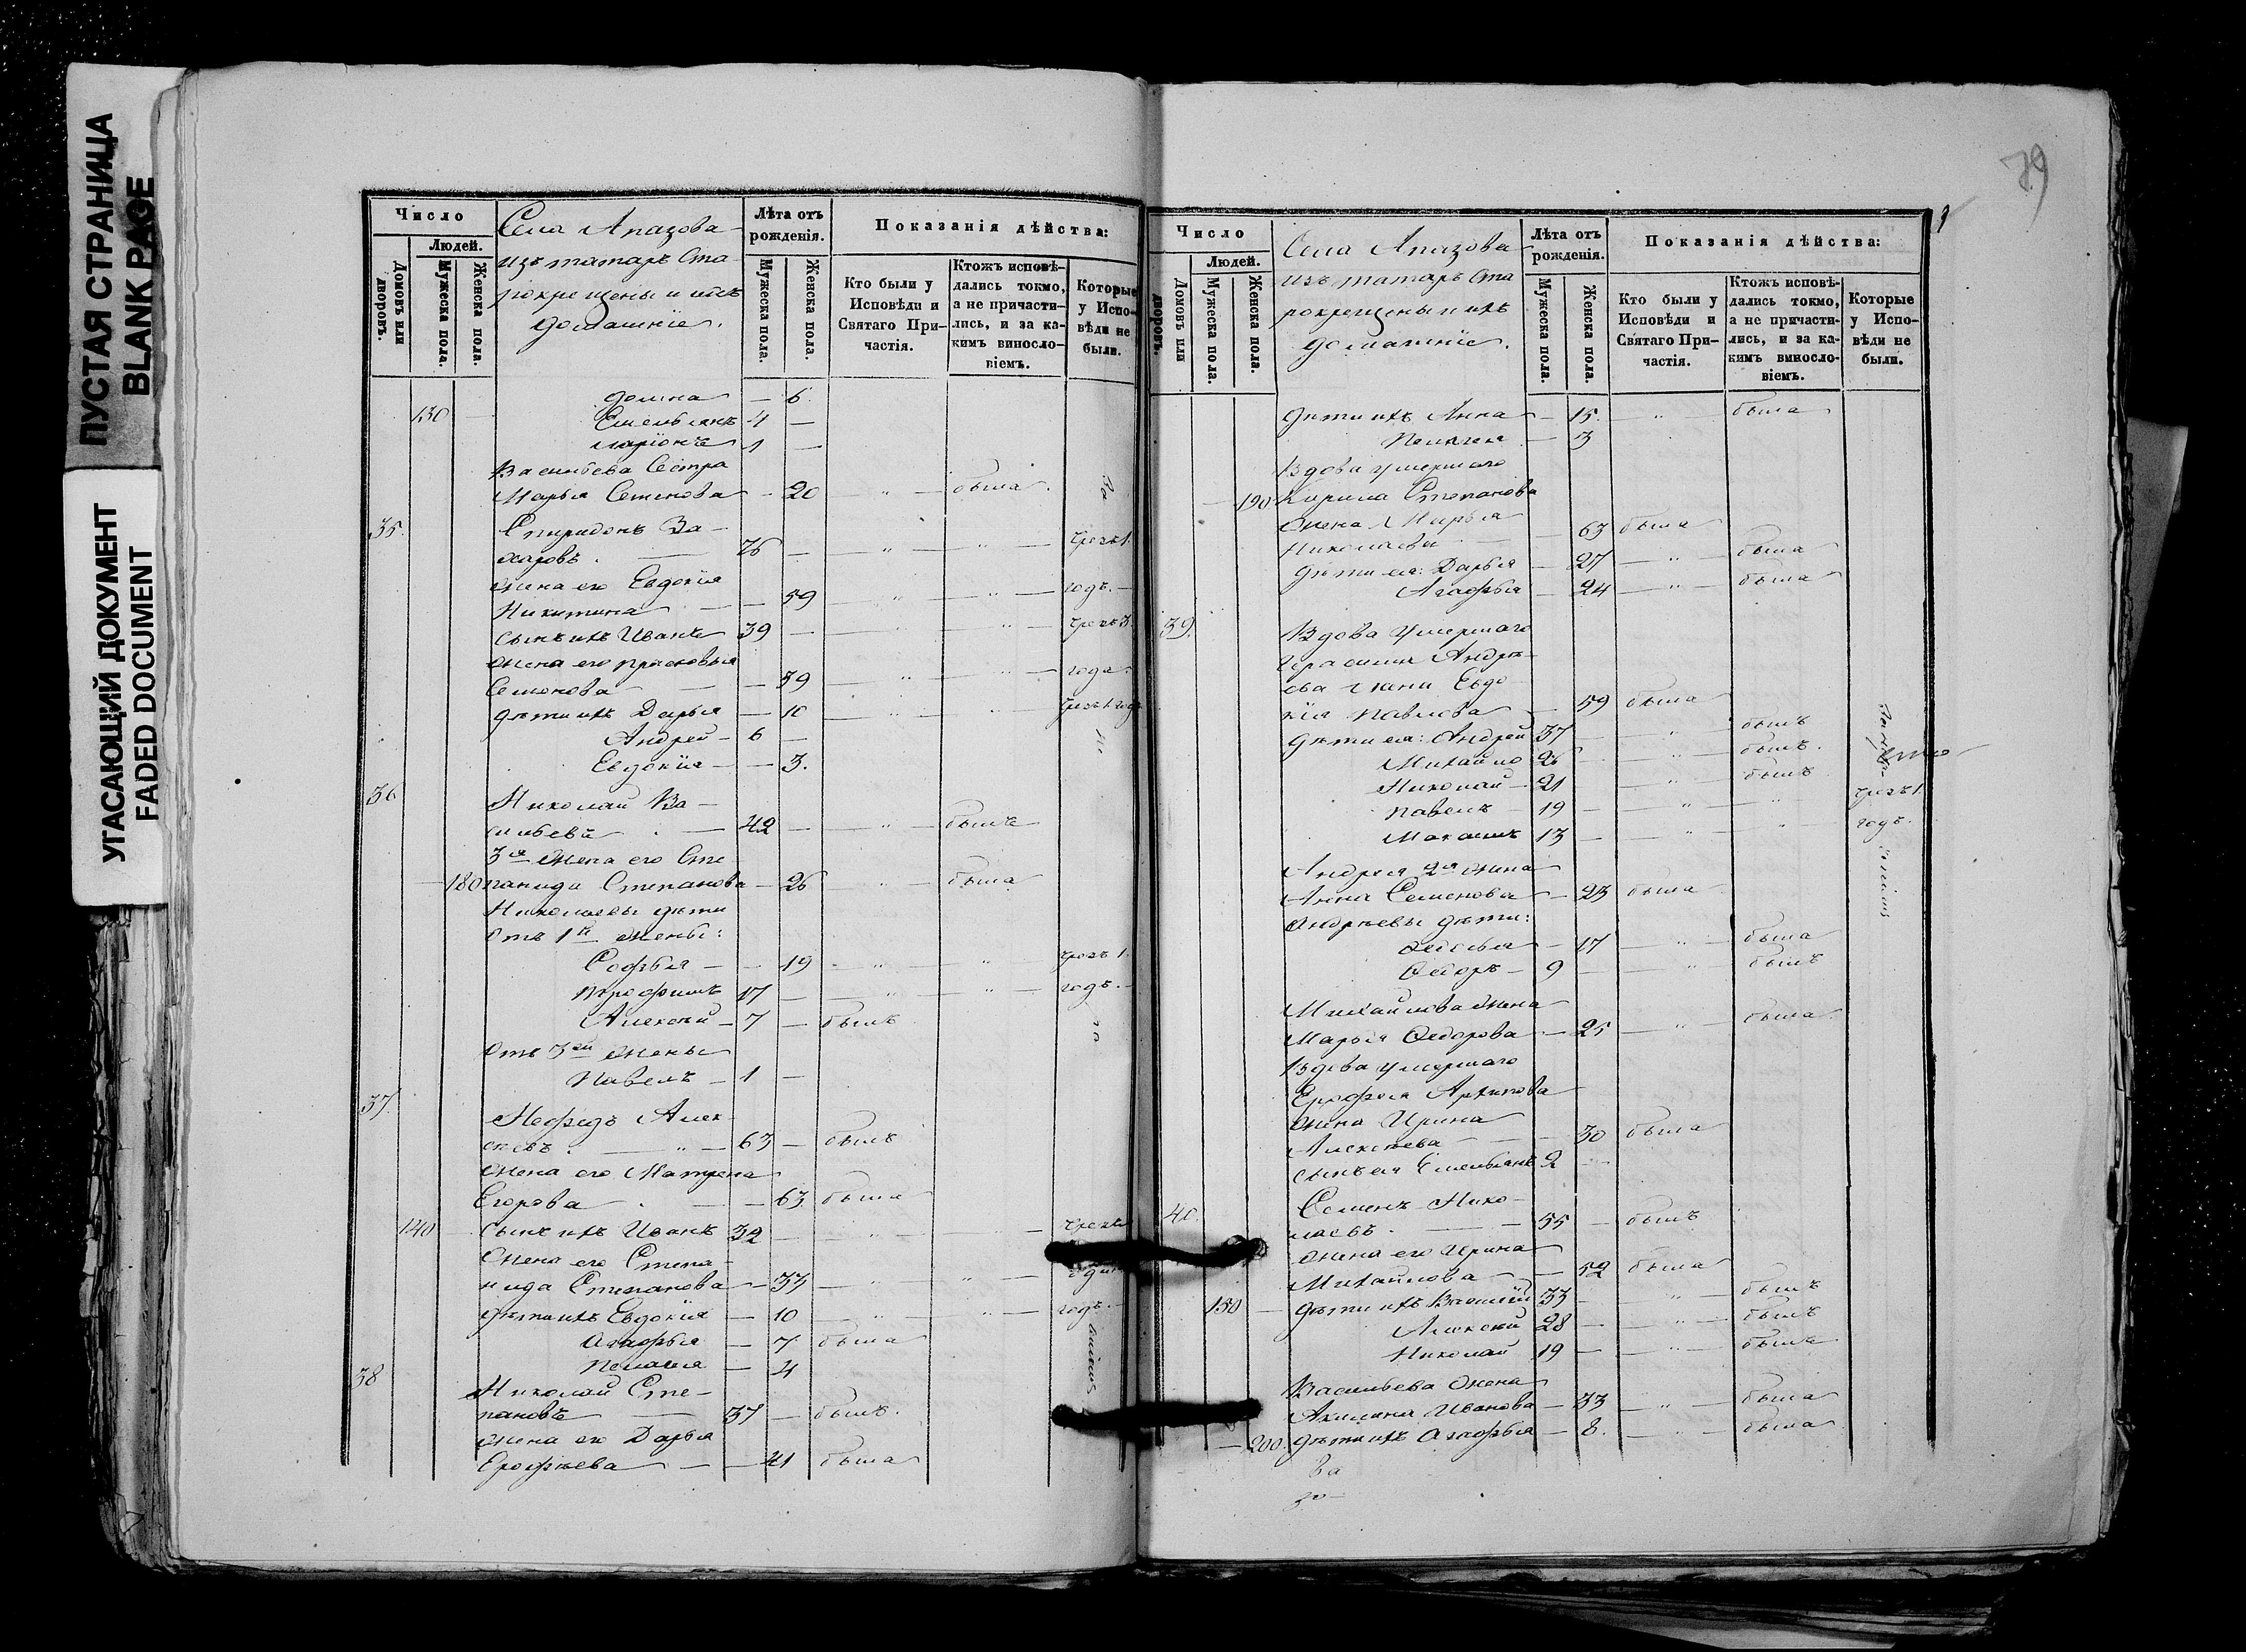 ПУСТАЯ СТРАНИЦА
BLANK PAGE
УГАСАЮЩИЙ ДОКУМЕНТ
FADED DOCUMENT
Число
Людей.
Домовъ или дворовъ.
Мужеска пола.
Женска пола.
Села Апазова
изъ татаръ Ста
рокрещены и ихъ
домашніе.
Лѣта отъ рожденія.
Мужеска пола.
Женска пола.
Показанія дѣйства:
Кто были у Исповѣди и Святаго При-частія.
Ктожъ исповѣ-дались токмо, а не причасти-лись, и за ка-кимъ винословіемъ.
Которые у Испо-вѣди не были.
6
130 Емельянъ 4
1
Васильева Сестра
Марья Семенова 20 была
35. Спиридонъ За-
харовъ. 76 чрезъ 1.
жена его Евдокія
Никитина 59 годъ.
сынъ ихъ Иванъ 39 чрезъ 3.
жена его Прасковья
Семенова 39 года.
дѣти ихъ Дарья 10 чрезъ 1 годъ
Андрей 6
Евдокія 3.
36 Николай Ва-
сильевъ 42 былъ
3я жена его Сте
180 панида Степанова 26 была
Николаевы дѣти
отъ 1й жены:
Софья 19 чрезъ 1.
Трофимъ 17 годъ.
Алексѣй 7 былъ
отъ 3ей жены
Павелъ 1
37. Нефедъ Алек
сѣевъ. 63 былъ
жена его Матрена
Егорова 63 была
140 сынъ ихъ Иванъ 32 чрезъ
жена его Степа-
нида Степанова 33 одинъ
дѣти ихъ Евдокія 10 годъ.
Агафья 7 была
Пелагея 4
38 Николай Сте-
пановъ 37 былъ.
жена его Дарья
Ерофѣева 41 была
79
Число
Людей.
Домовъ или дворовъ.
Мужеска пола.
Женска пола.
Села Апазова
изъ татаръ Ста
рокрещены и ихъ
домашніе.
Лѣта отъ рожденія.
Мужеска пола.
Женска пола.
Показанія дѣйства:
Кто были у Исповѣди и Святаго При-частія.
Ктожъ исповѣ-дались токмо, а не причасти-лись, и за ка-кимъ винословіемъ.
Которые у Испо-вѣди не были.
дѣти ихъ Анна 15. была
Пелагея 3
Вдова умершаго
190 Кирила Степанова
жена Марья
Николаева 63 была
дѣти ея: Дарья 27 была
Агафья 24 была
39. Вдова умершаго
Герасима Андрѣ-
ева жена Евдо-
кія Павлова 59 была
дѣти ея: Андрей 37 былъ
Михайло 26 былъ.
Николай 21 былъ
Павелъ 19 чрезъ 1.
Максимъ 13 годъ.
Андрея 2я жена
Анна Семенова 23 была
Андрѣевы дѣти:
Ѳедосья 17 была
Ѳедоръ 9 былъ
Михайлова жена
Марья Ѳедорова 25 была
Вдова умершаго
Ерофея Архипова
жена Ирина
Алексѣева 30 была
сынъ ея Емельянъ 2
40. Семенъ Нико-
лаевъ. 55 былъ
жена его Ирина
Михайлова 52 была
150 дѣти ихъ Василій 33 былъ
Алексѣй 28 былъ
Николай 19 былъ
Васильева жена
Акилина Иванова 33 была
200. дѣти ихъ Агафья 8. была